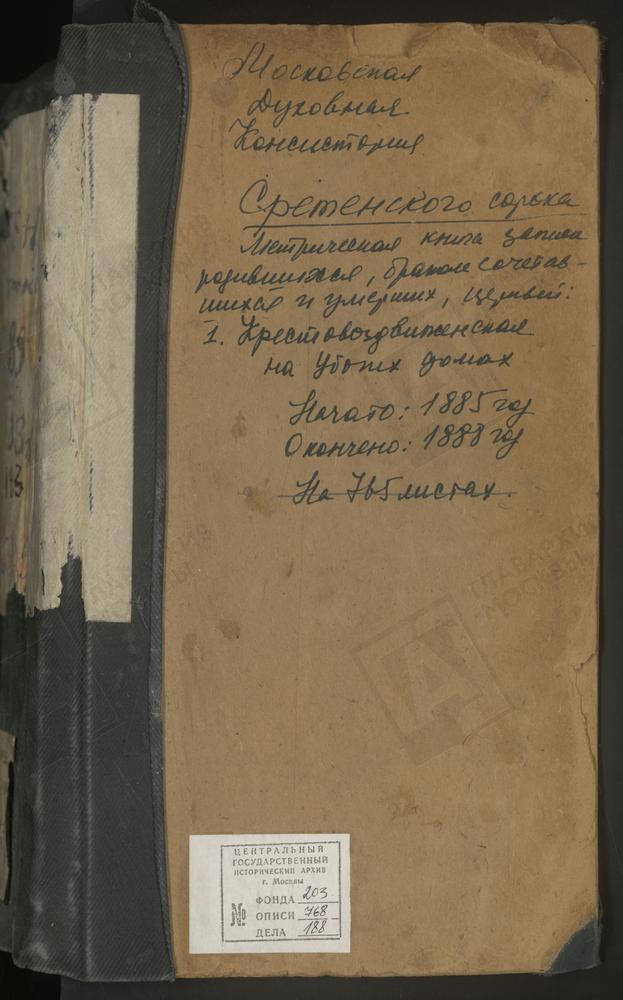 Московская
Духовная
Консистория
Сретенского сорока
Метрическая книга записи
родившихся, браком сочетав-
шихся и умерших, церквей:
1. Крестовоздвиженская
на Убогих домах
Начато: 1885 год
Окончено: 1888 год
На 765 листах.
ЦЕНТРАЛЬНЫЙ
ГОСУДАРСТВЕННЫЙ
ИСТОРИЧЕСКИЙ АРХИВ
г. Москвы
ФОНДА 203
ОПИСИ 768
ДЕЛА 188
ГЛАВАРХИВ
МОСКВЫ